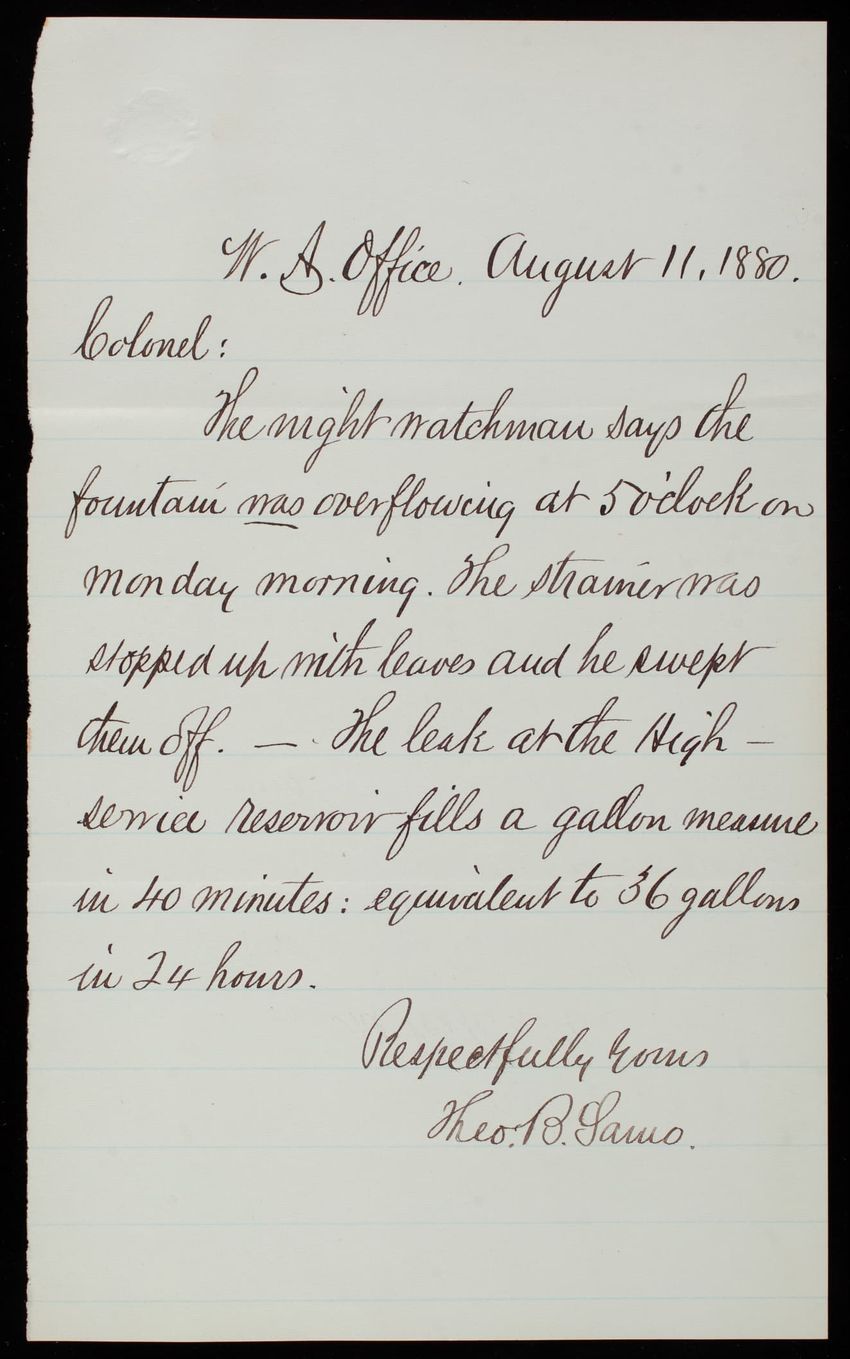 W. A. Office. August 11, 1880.
Colonel:
The night watchman says the
fountain was overflowing at 5 o'clock on
monday morning. The strainer was
stopped up with leaves and he swept
them off. — The leak at the High-
service reservoir fills a gallon measure
in 40 minutes: equivalent to 36 gallons
in 24 hours.
Respectfully Yours
Theo. B. Samo.